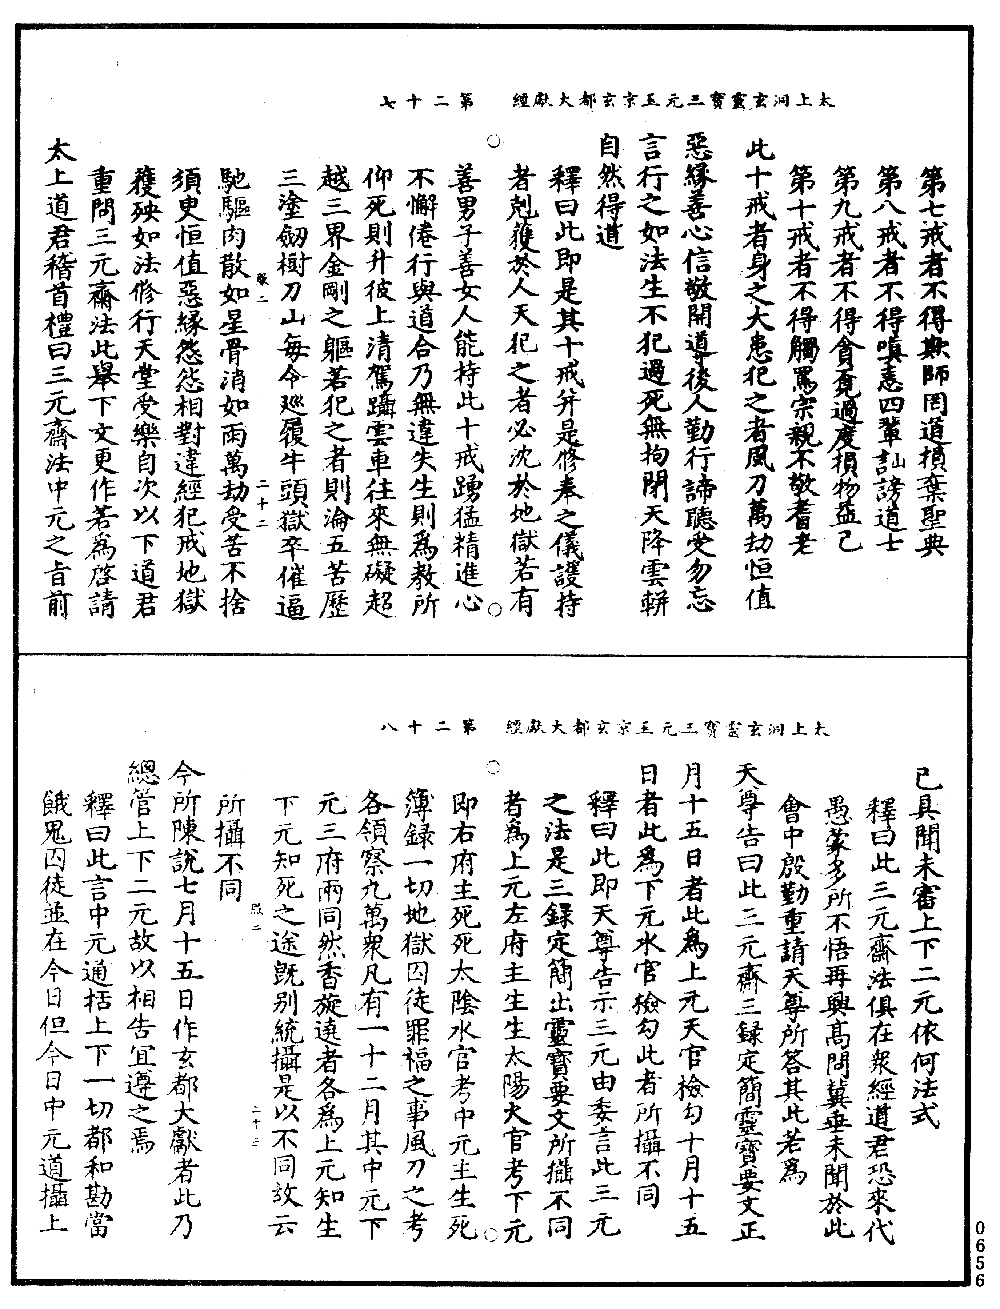 太上洞玄靈寶三元玉京玄都大獻經　第二十七
第七戒者不得欺師罔道損棄聖典
第八戒者不得嗔恚四輩訕謗道士
第九戒者不得貪食過度損物益己
第十戒者不得觸罵宗親不敬耆老
此十戒者身之大患犯之者風刀萬劫恒值
惡緣善心信敬開導後人勤行諦聽受勿忘
言行之如法生不犯過死無拘閉天降雲軿
自然得道
釋曰此即是其十戒并是修奉之儀護持
者剋獲於人天犯之者必沈於地獄若有
善男子善女人能持此十戒踴猛精進心
不懈倦行與道合乃無違失生則為教所
仰死則升彼上清駕躡雲車往來無礙超
越三界金剛之軀若犯之者則淪五苦歷
三塗劒樹刀山每令巡履牛頭獄卒催逼
馳驅肉散如星骨消如雨萬劫受苦不捨
須臾恒值惡緣忩忩相對違經犯戒地獄
獲殃如法修行天堂受樂自次以下道君
重問三元齋法此舉下文更作若為啓請
太上道君稽首禮曰三元齋法中元之旨前
太上洞玄靈寶三元玉京玄都大獻經　第二十八
已具聞未審上下二元依何法式
釋曰此三元齋法俱在衆經道君恐來代
愚蒙多所不悟再興高問冀垂未聞於此
會中殷勤重請天尊所答其此若為
天尊告曰此三元齋三録定簡靈寶要文正
月十五日者此為上元天官檢勾十月十五
日者此為下元水官檢勾此者所攝不同
釋曰此即天尊告示三元由委言此三元
之法是三録定簡出靈寶要文所攝不同
者為上元左府主生生太陽火官考下元
即右府主死死太陰水官考中元主生死
簿録一切地獄囚徒罪福之事風刀之考
各領察九萬衆凡有一十二月其中元下
元三府兩同然香旋遶者各為上元知生
下元知死之途既别統攝是以不同故云
所攝不同
今所陳說七月十五日作玄都大獻者此乃
總管上下二元故以相告宜遵之焉
釋曰此言中元通括上下一切都和勘當
餓鬼囚徒並在今日但今日中元道攝上
0656